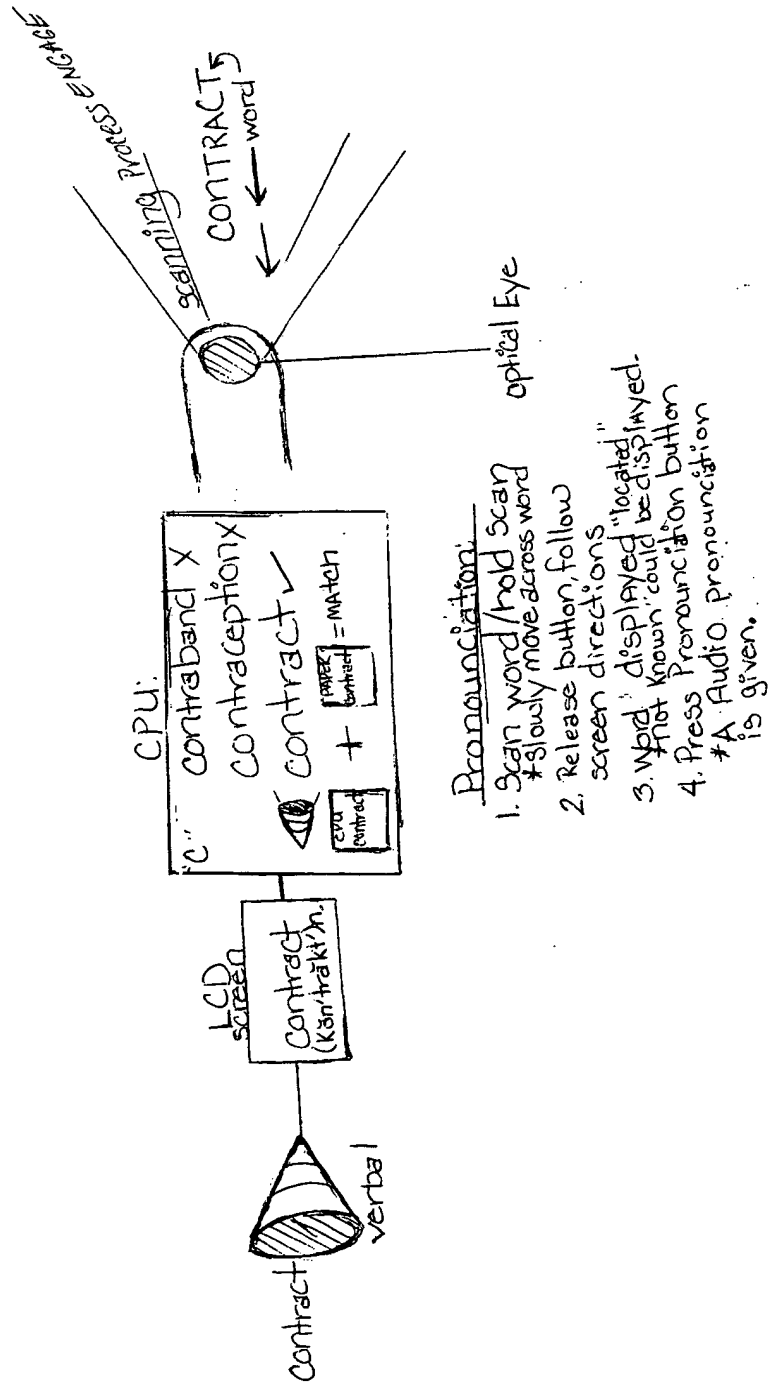 contract
verbal
LCD
screen
contract
(Kŏn'trăkt')n.
CPU:
"C"
contraband X
contraception X
contract ✓
CPU
contract
+
PAPER
contract
= MAtch
scanning Process: ENGAGE
CONTRACT
word
optical Eye
Pronounciation:
1. Scan word/hold scan
*slowly move across word
2. Release button, follow
screen directions
3. Word displAyed "located"
*"not known" could be displAyed.
4. Press Pronounciation button
*A Audio pronounciation
is given.